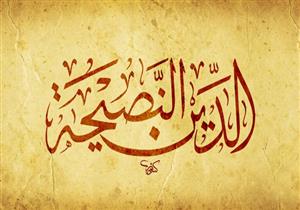 الدِّين النَّصيحة